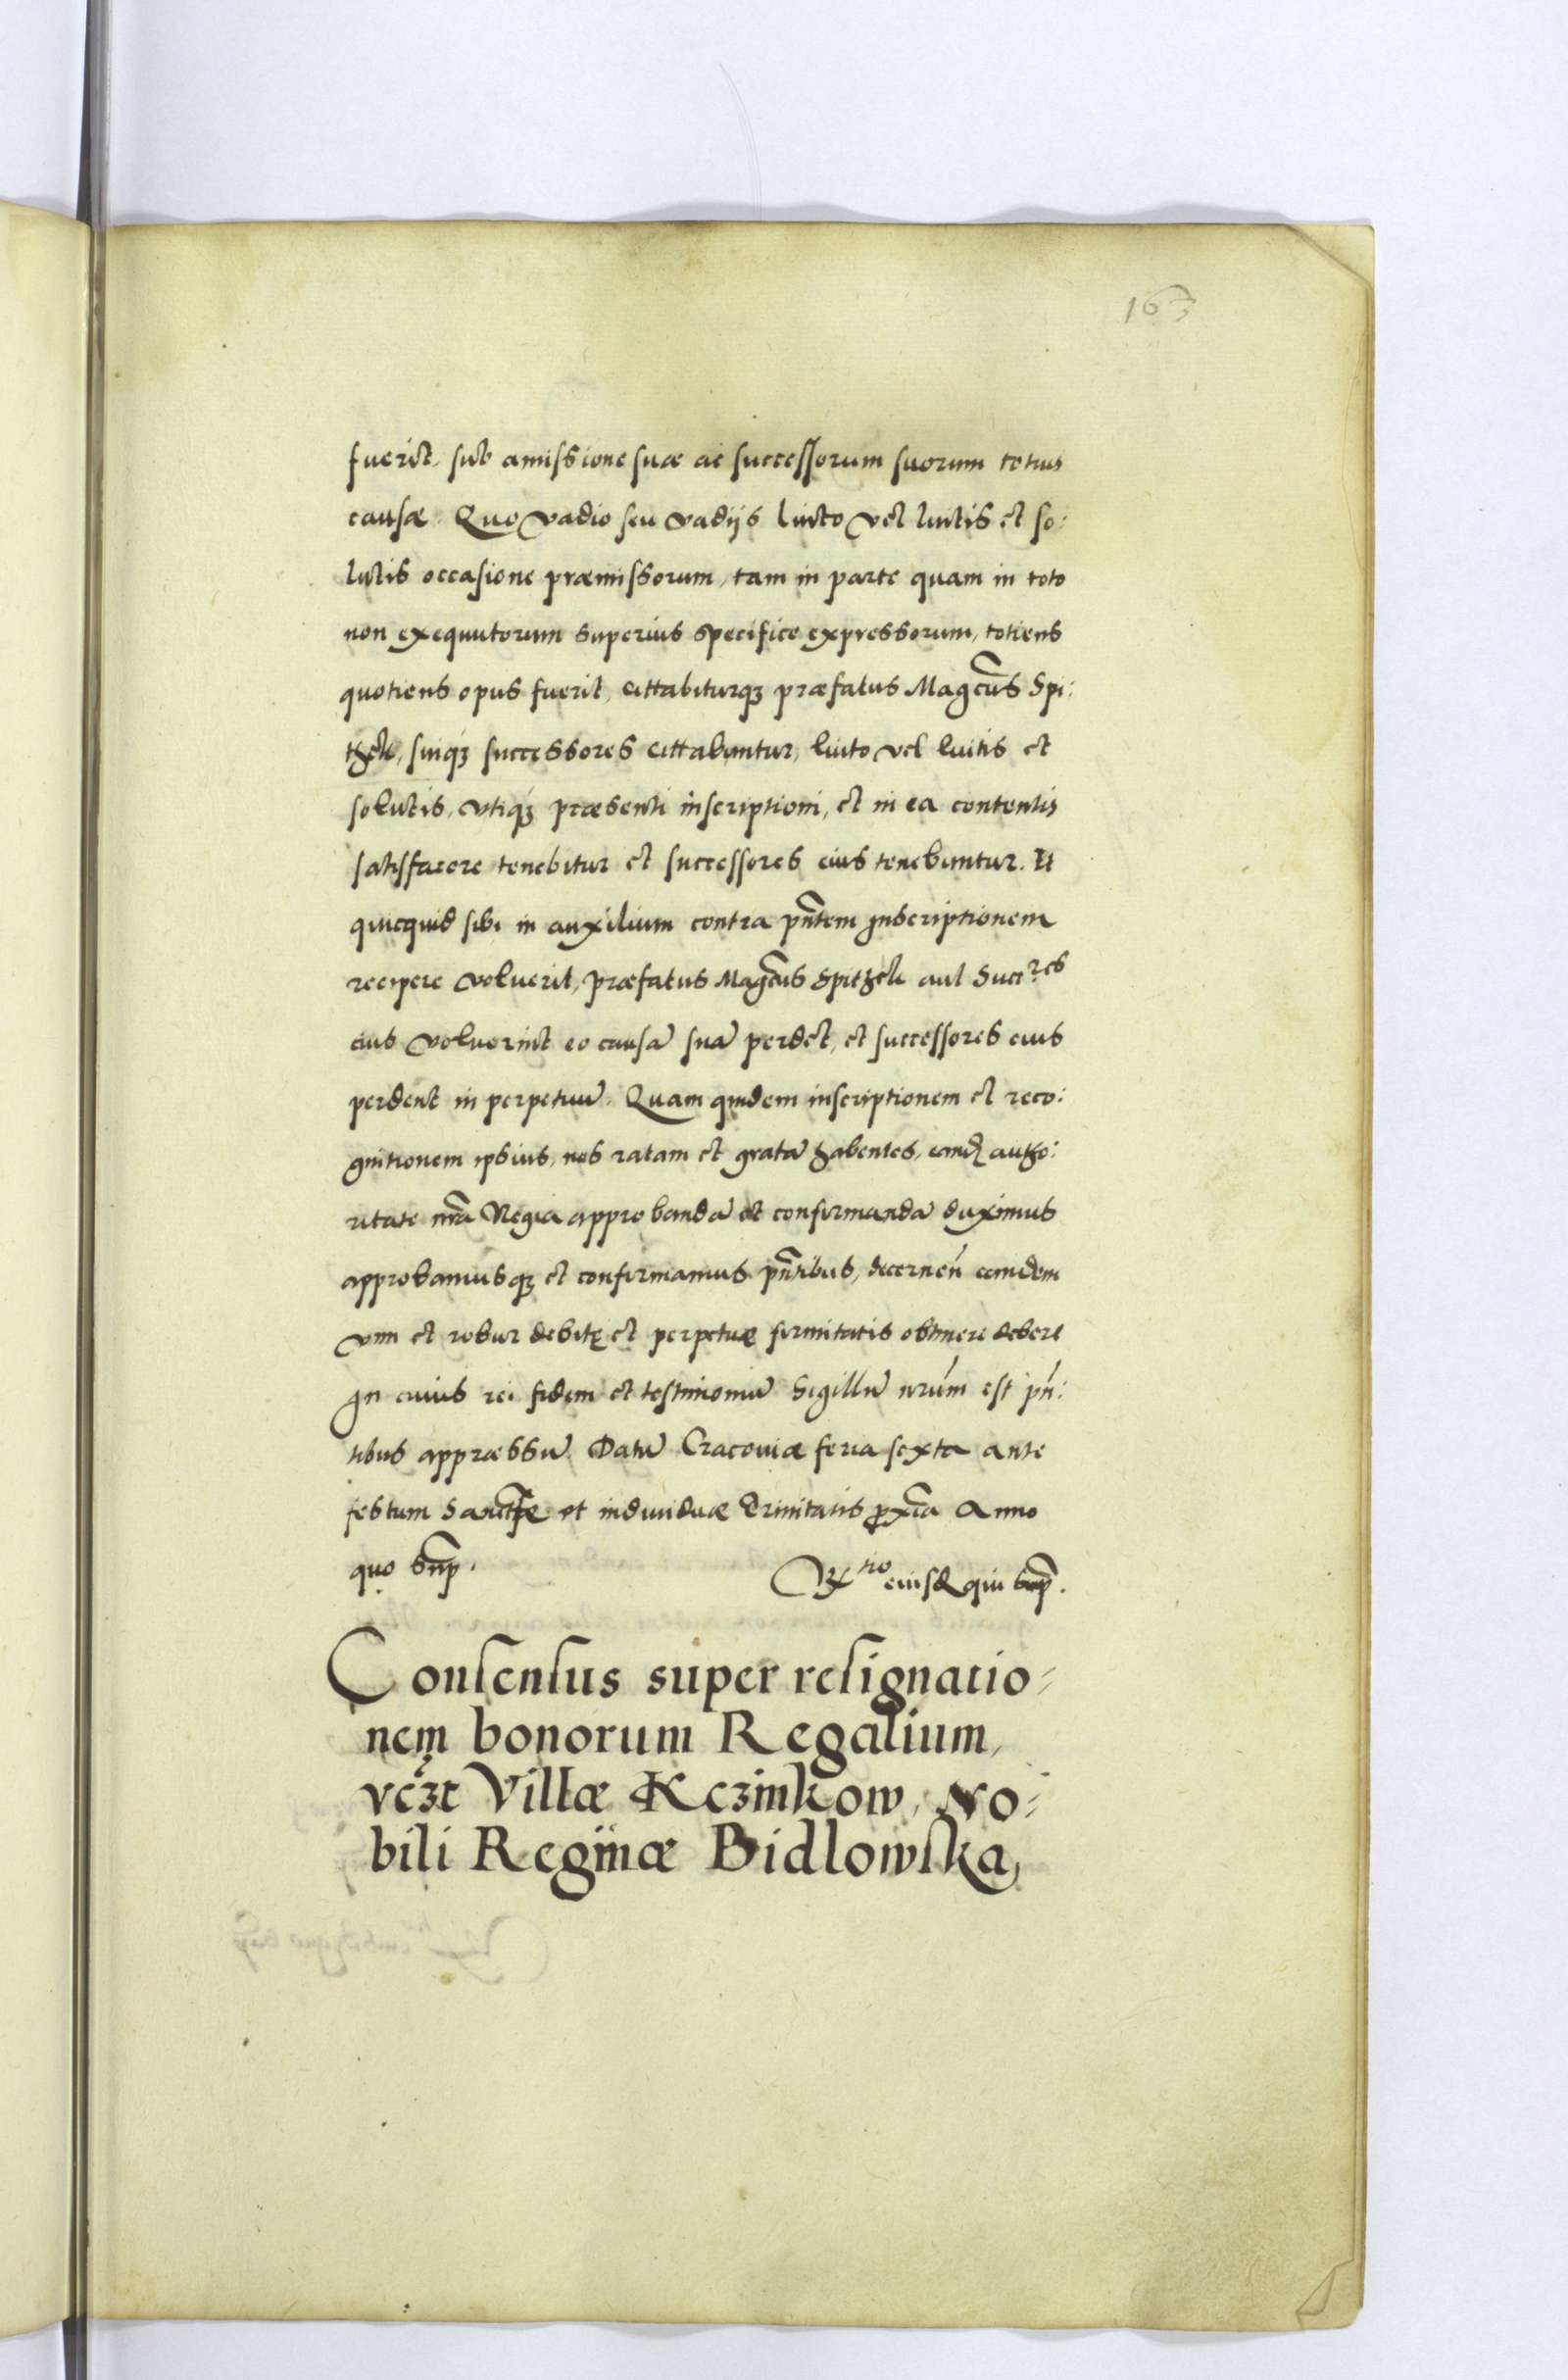 163
fuerit, sub amissione suæ ac successorum suorum totius
causæ. Quo vadio seu vadijs luito vel luitis et so:
lutis occasione præmissorum, tam in parte quam in toto
non exequutorum superius specifice expressorum, totiens
quotiens opus fuerit, cittabiturqꝫ præfatus Magcus̃ Spi:
thek, suiqꝫ successores cittabuntur, luito vel luitis et
solutis, utiqꝫ præsenti inscriptioni, et in ea contentis
satisfacere tenebitur et successores eius tenebuntur. Et
quicquid sibi in auxilium contra pñtem Inscriptionem
recipere voluerit, præfatus Magcus̃ Spithek aut Succres
eius voluerint eo causā suā perdet, et successores eius
perdent in perpetuū. Quam quidem inscriptionem et reco:
gnitionem ipsius, nos ratam et gratā habentes, eand autho:
ritate nrã Regia approbandā et confirmandā duximus
approbamusqꝫ et confirmamus pñtibus, decerneñ eamdem
vim et robur debitę et perpetuæ firmitatis obtinere debere
In cuius rei fidem et testimoniū Sigillū nrũm est pñ:
tibus appræssū. Datū Cracoviæ feria sexta ante
festum Sanctæ et individuæ Trinitatis proxĩa Anno
quo sũp.
Rtio eiusd qui sũp.
Consensus super resignatio⸗
nem bonorum Regalium,
vcꝫt Villæ Kczinkow, No⸗
bili Reginæ Bidlowska,